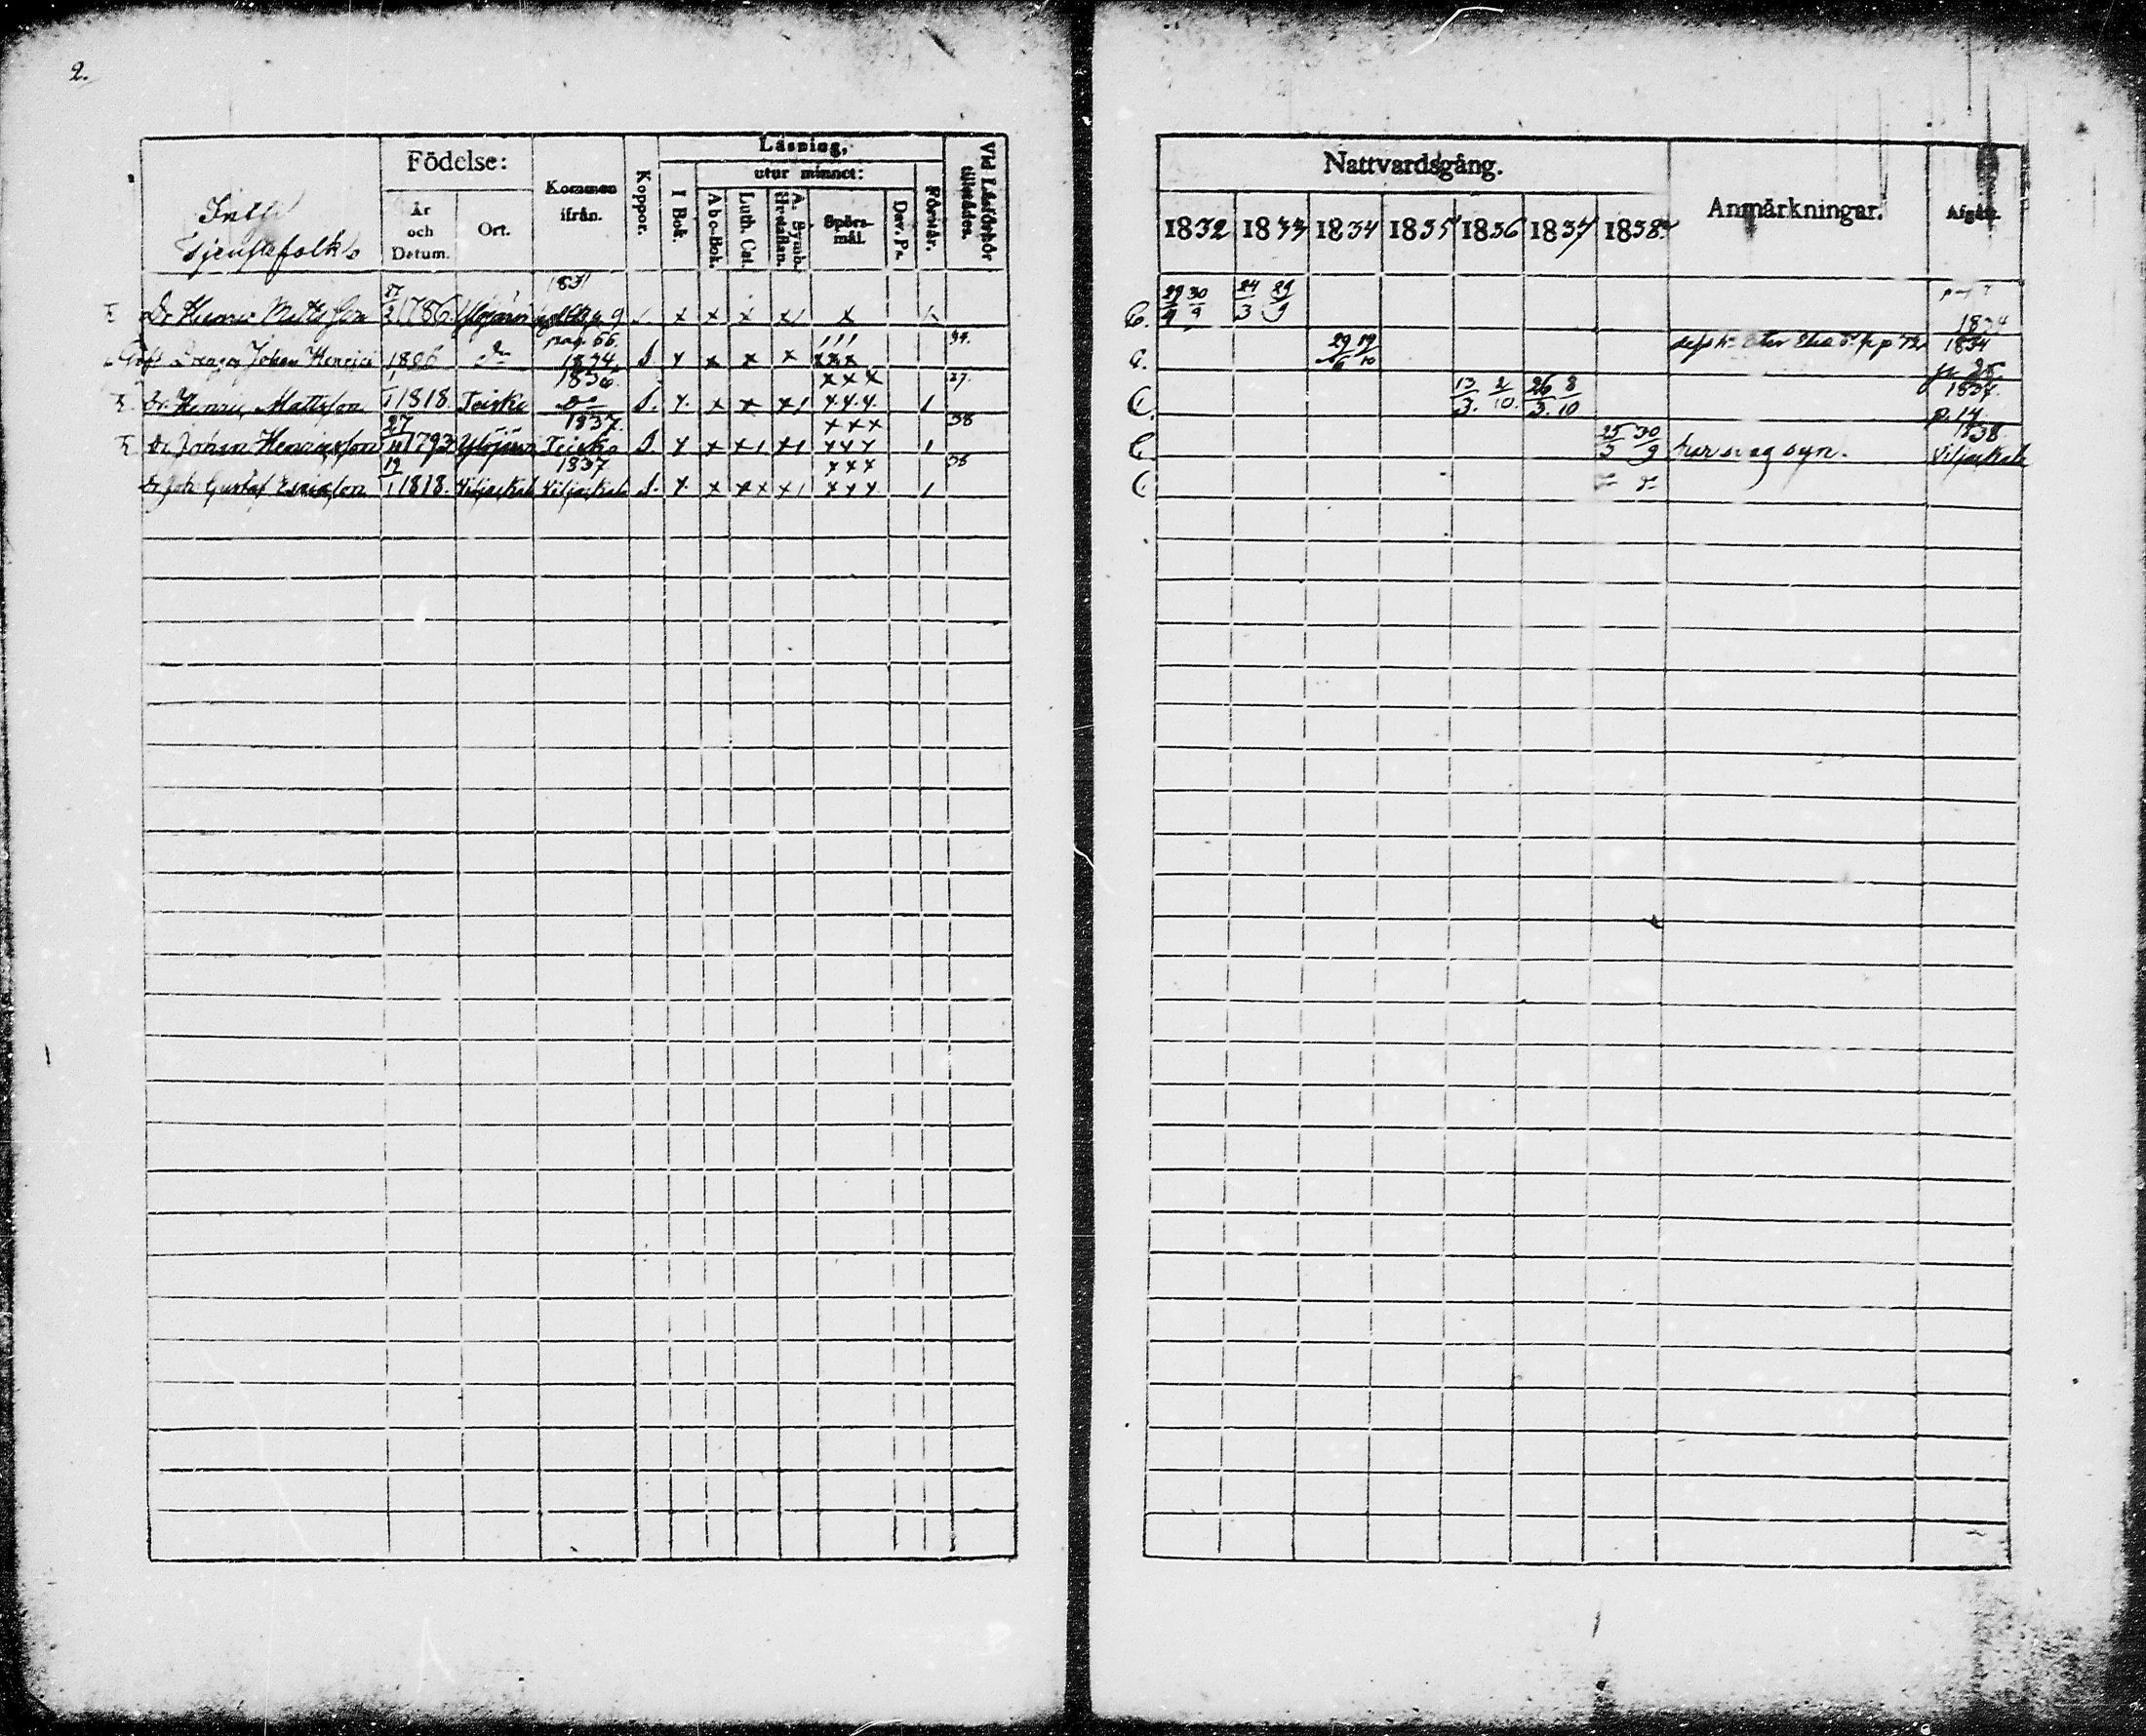 2.
Födelse:
Kommen ifrån.
Koppor.
Läsning,
utur minnet:
Vid Läsförhör tillstädes.
År och Datum.
Ort.
I Bok.
Abc-Bok.
Luth. Cat.
A. Symb.
Spörs-mål.
Dav. Ps.
Förstår.
Tjenstefolk
1831
Dr Henric Mattsson 1786. Ylöjärvi p. 9 x x x x x
pag. 66. 34.
Drengen Johan Henrics 1806 Do 1834. S. x x x x xxx
1836. xxx 37.
1
1 1818. Teisko Do S. x. x x x1 x.x.x. 1
Dr. Henric Mattsson
27 1837. xxx 38
Dr. Johan Henricsson 1793 Ylöjärvi Teisko S. x x x1 x1 xxx 1
19 1837 xxx 38
Dr Joh. Gustaf Ericsson 1 1818. Viljakkala Viljakkala S. x. x xx x1 xxx 1
Nattvardsgång.
Anmärkningar.
Afgått.
1832 1833 1834 1835 1836 1837 1838
C. 29/4 30/9 24/3 29/9 1834
C. 29/6 19/10 1834
C. 13/3. 2/10. 26/3. 8/10 1837.
p. 14.
C. 25/3 30/9 har svag syn. 1838 Viljakkala
C. Do Do